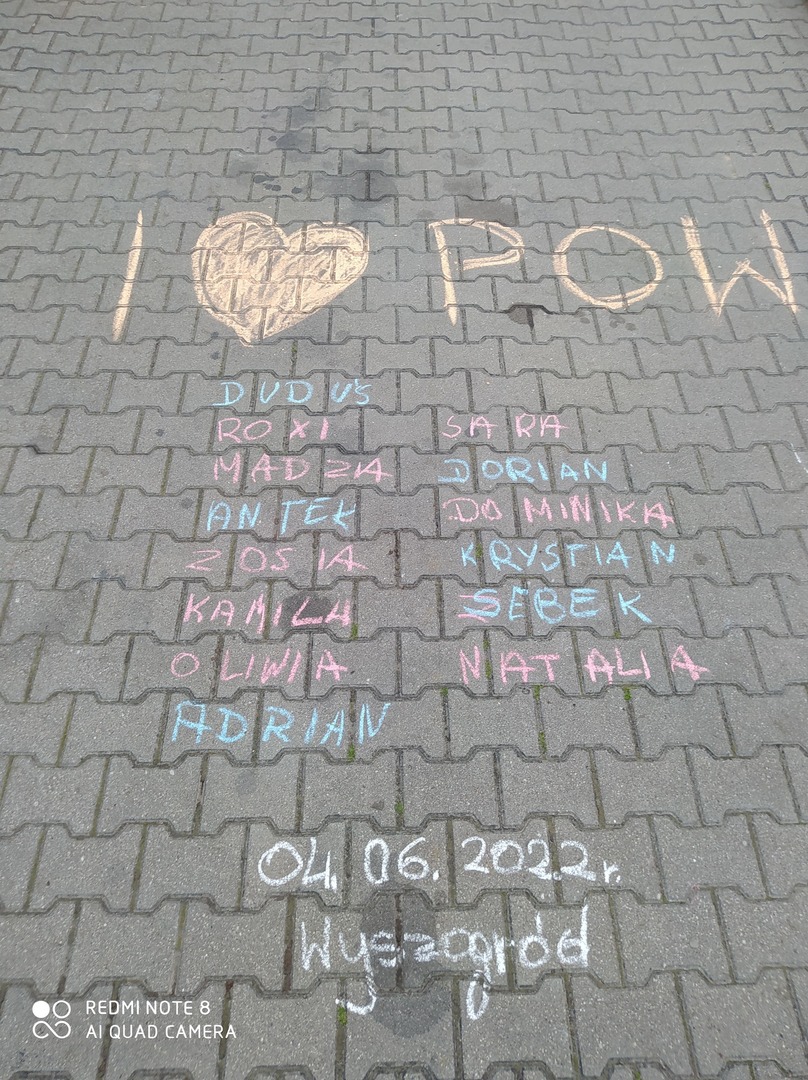 I ❤ POW
DUDUŚ
ROXI SARA
MADZIA DORIAN
ANTEK DOMINIKA
ZOSIA KRYSTIAN
KAMILA SEBEK
OLIWIA NATALIA
ADRIAN
04.06.2022r.
Wyszogród
REDMI NOTE 8
AI QUAD CAMERA